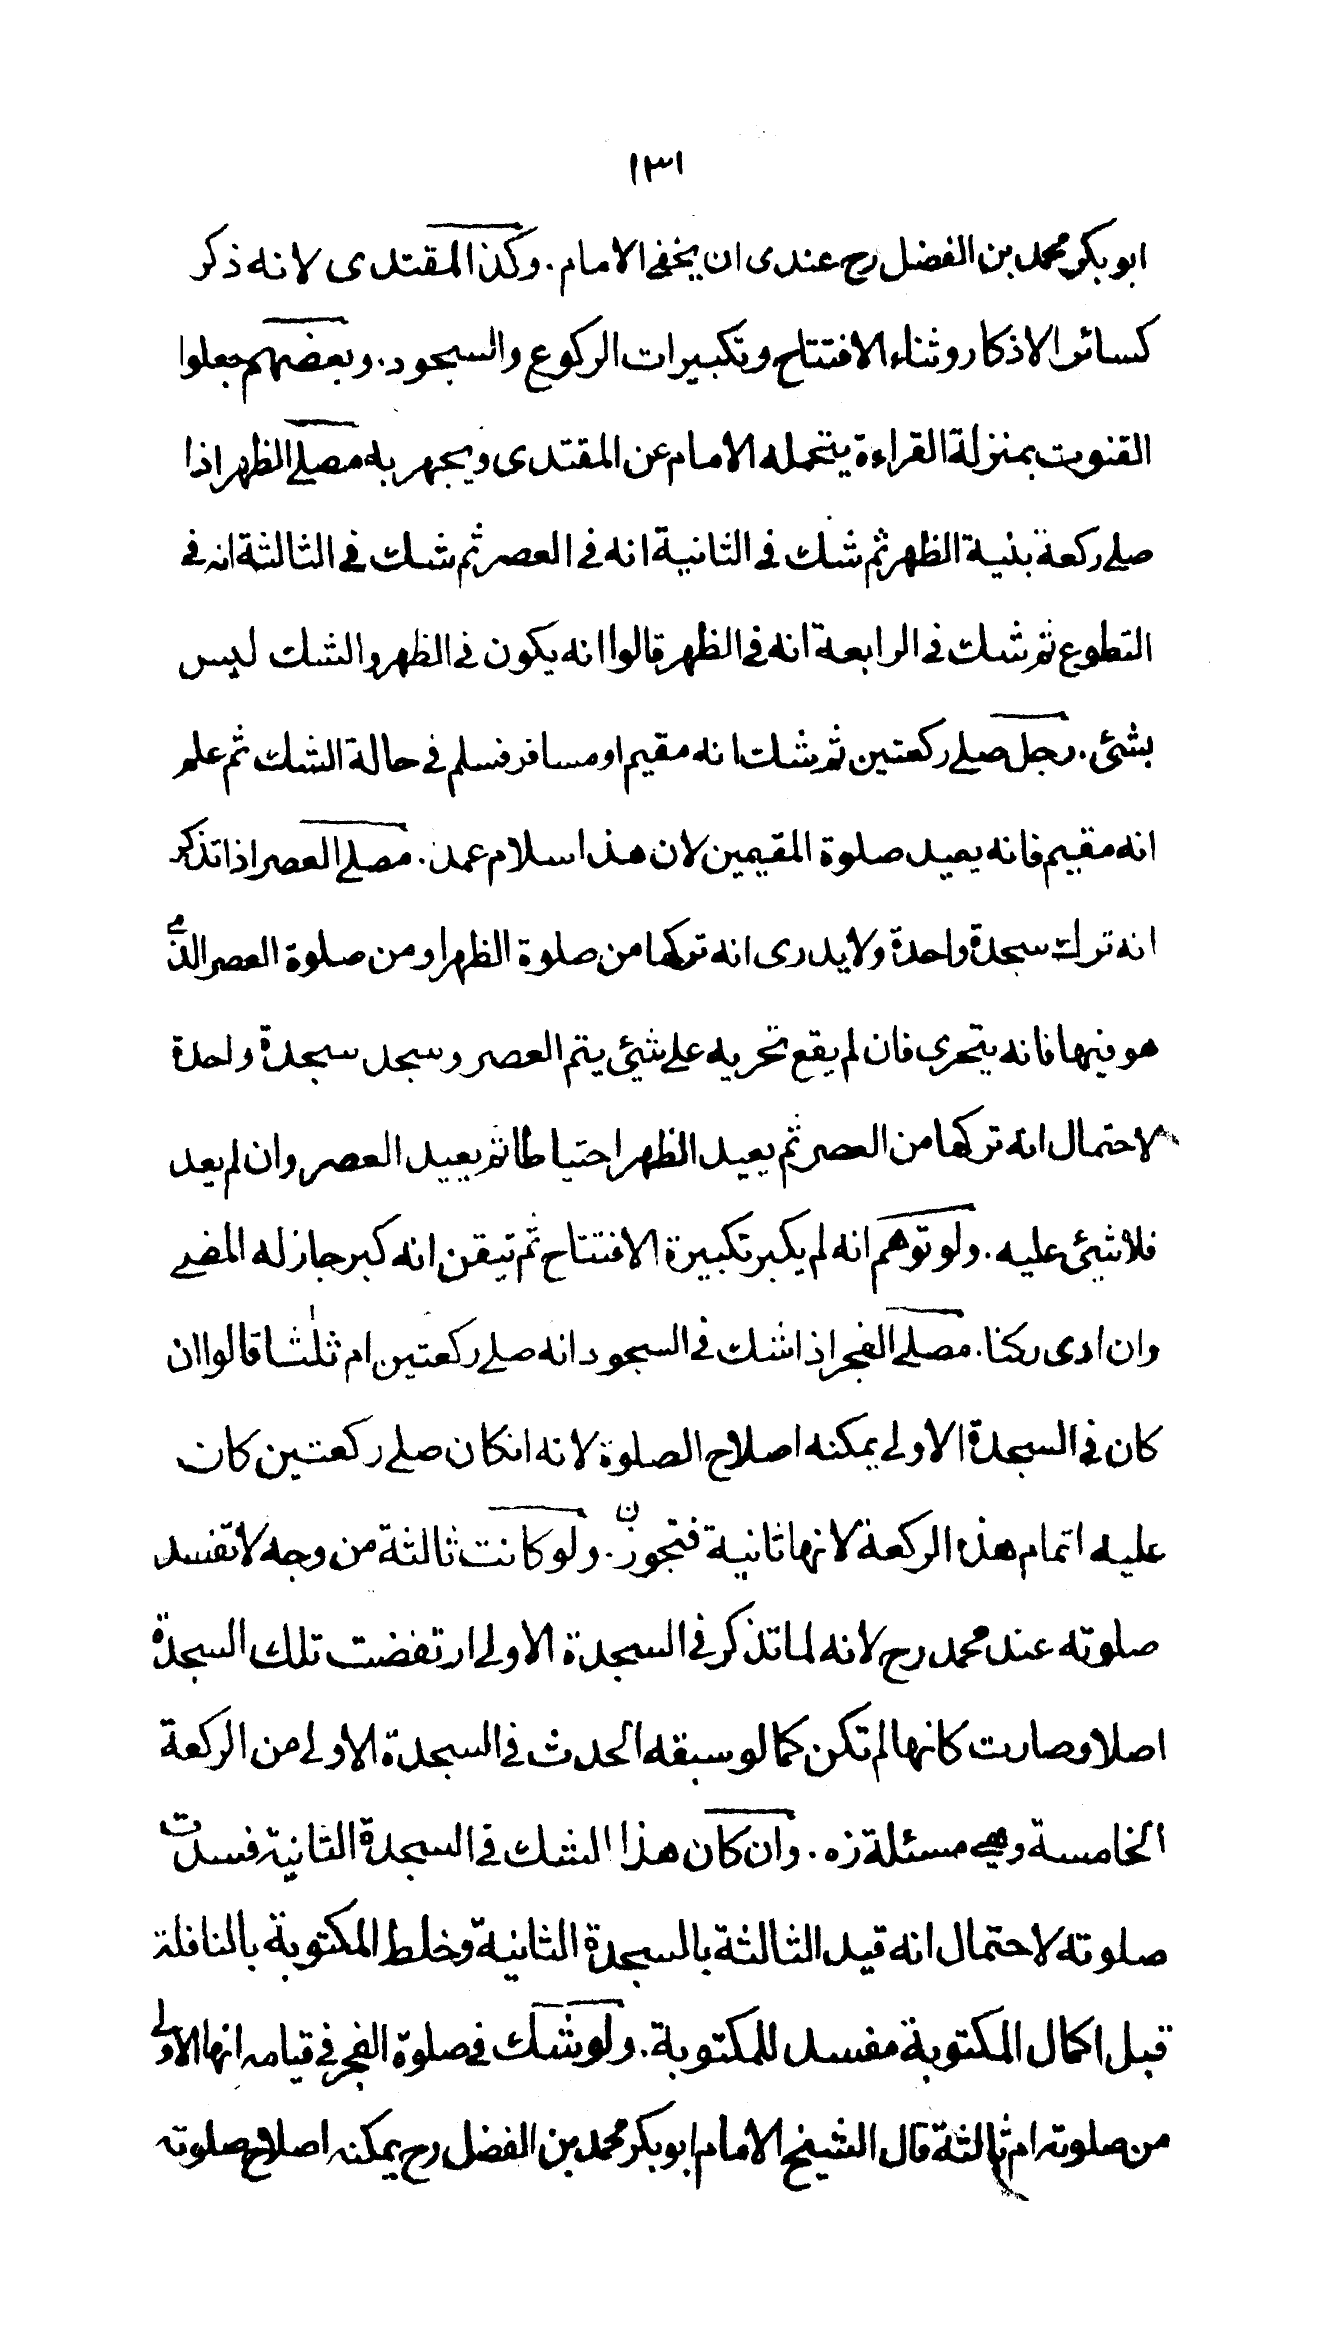 ١٣١
ابو بكر محمد بن الفضل رح عندى ان يخفى الامام. وكذا المقتدى لانه ذكر
كسائر الاذكار وثناء الافتتاح وتكبيرات الركوع والسجود. وبعضهم جعلوا
القنوت بمنزلة القراءة يتحمله الامام عن المقتدى ويجهر به مصلى الظهر اذا
صلى ركعة بنية الظهر ثم شك فى الثانية انه فى العصر ثم شك فى الثالثة انه فى
التطوع ثم شك فى الرابعة انه فى الظهر قالوا انه يكون فى الظهر والشك ليس
بشئ. رجل صلى ركعتين ثم شك انه مقيم او مسافر فسلم فى حالة الشك ثم علم
انه مقيم فانه يعيد صلوة المقيمين لان هذا سلام عمد. مصلى العصر اذا تذكر
انه ترك سجدة واحدة ولا يدرى انه تركها من صلوة الظهر او من صلوة العصر الذى
هو فيها فانه يتحرى فان لم يقع تحريه على شئ يتم العصر وسجد سجدة واحدة
لاحتمال انه تركها من العصر ثم يعيد الظهر احتياطا ثم يعيد العصر وان لم يعد
فلا شئ عليه. ولو توهم انه لم يكبر تكبيرة الافتتاح ثم تيقن انه كبر جاز له المضى
وان ادى ركنا. مصلى الفجر اذا شك فى السجود انه صلى ركعتين ام ثلثا قالوا ان
كان فى السجدة الاولى يمكنه اصلاح الصلوة لانه انكان صلى ركعتين كان
عليه اتمام هذه الركعة لانها ثانية فتجوز. ولو كانت ثالثة من وجه لا تفسد
صلوته عند محمد رح لانه لما تذكر فى السجدة الاولى ارتفضت تلك السجدة
اصلا وصارت كانها لم تكن كما لو سبقه الحدث فى السجدة الاولى من الركعة
الخامسة وهى مسئلة زه. وان كان هذا الشك فى السجدة الثانية فسدت
صلوته لاحتمال انه قيد الثالثة بالسجدة الثانية وخلط المكتوبة بالنافلة
قبل اكمال المكتوبة مفسد للمكتوبة. ولو شك فى صلوة الفجر فى قيامه انها الاولى
من صلوته ام ثالثة قال الشيخ الامام ابو بكر محمد بن الفضل رح يمكنه اصلاح صلوته